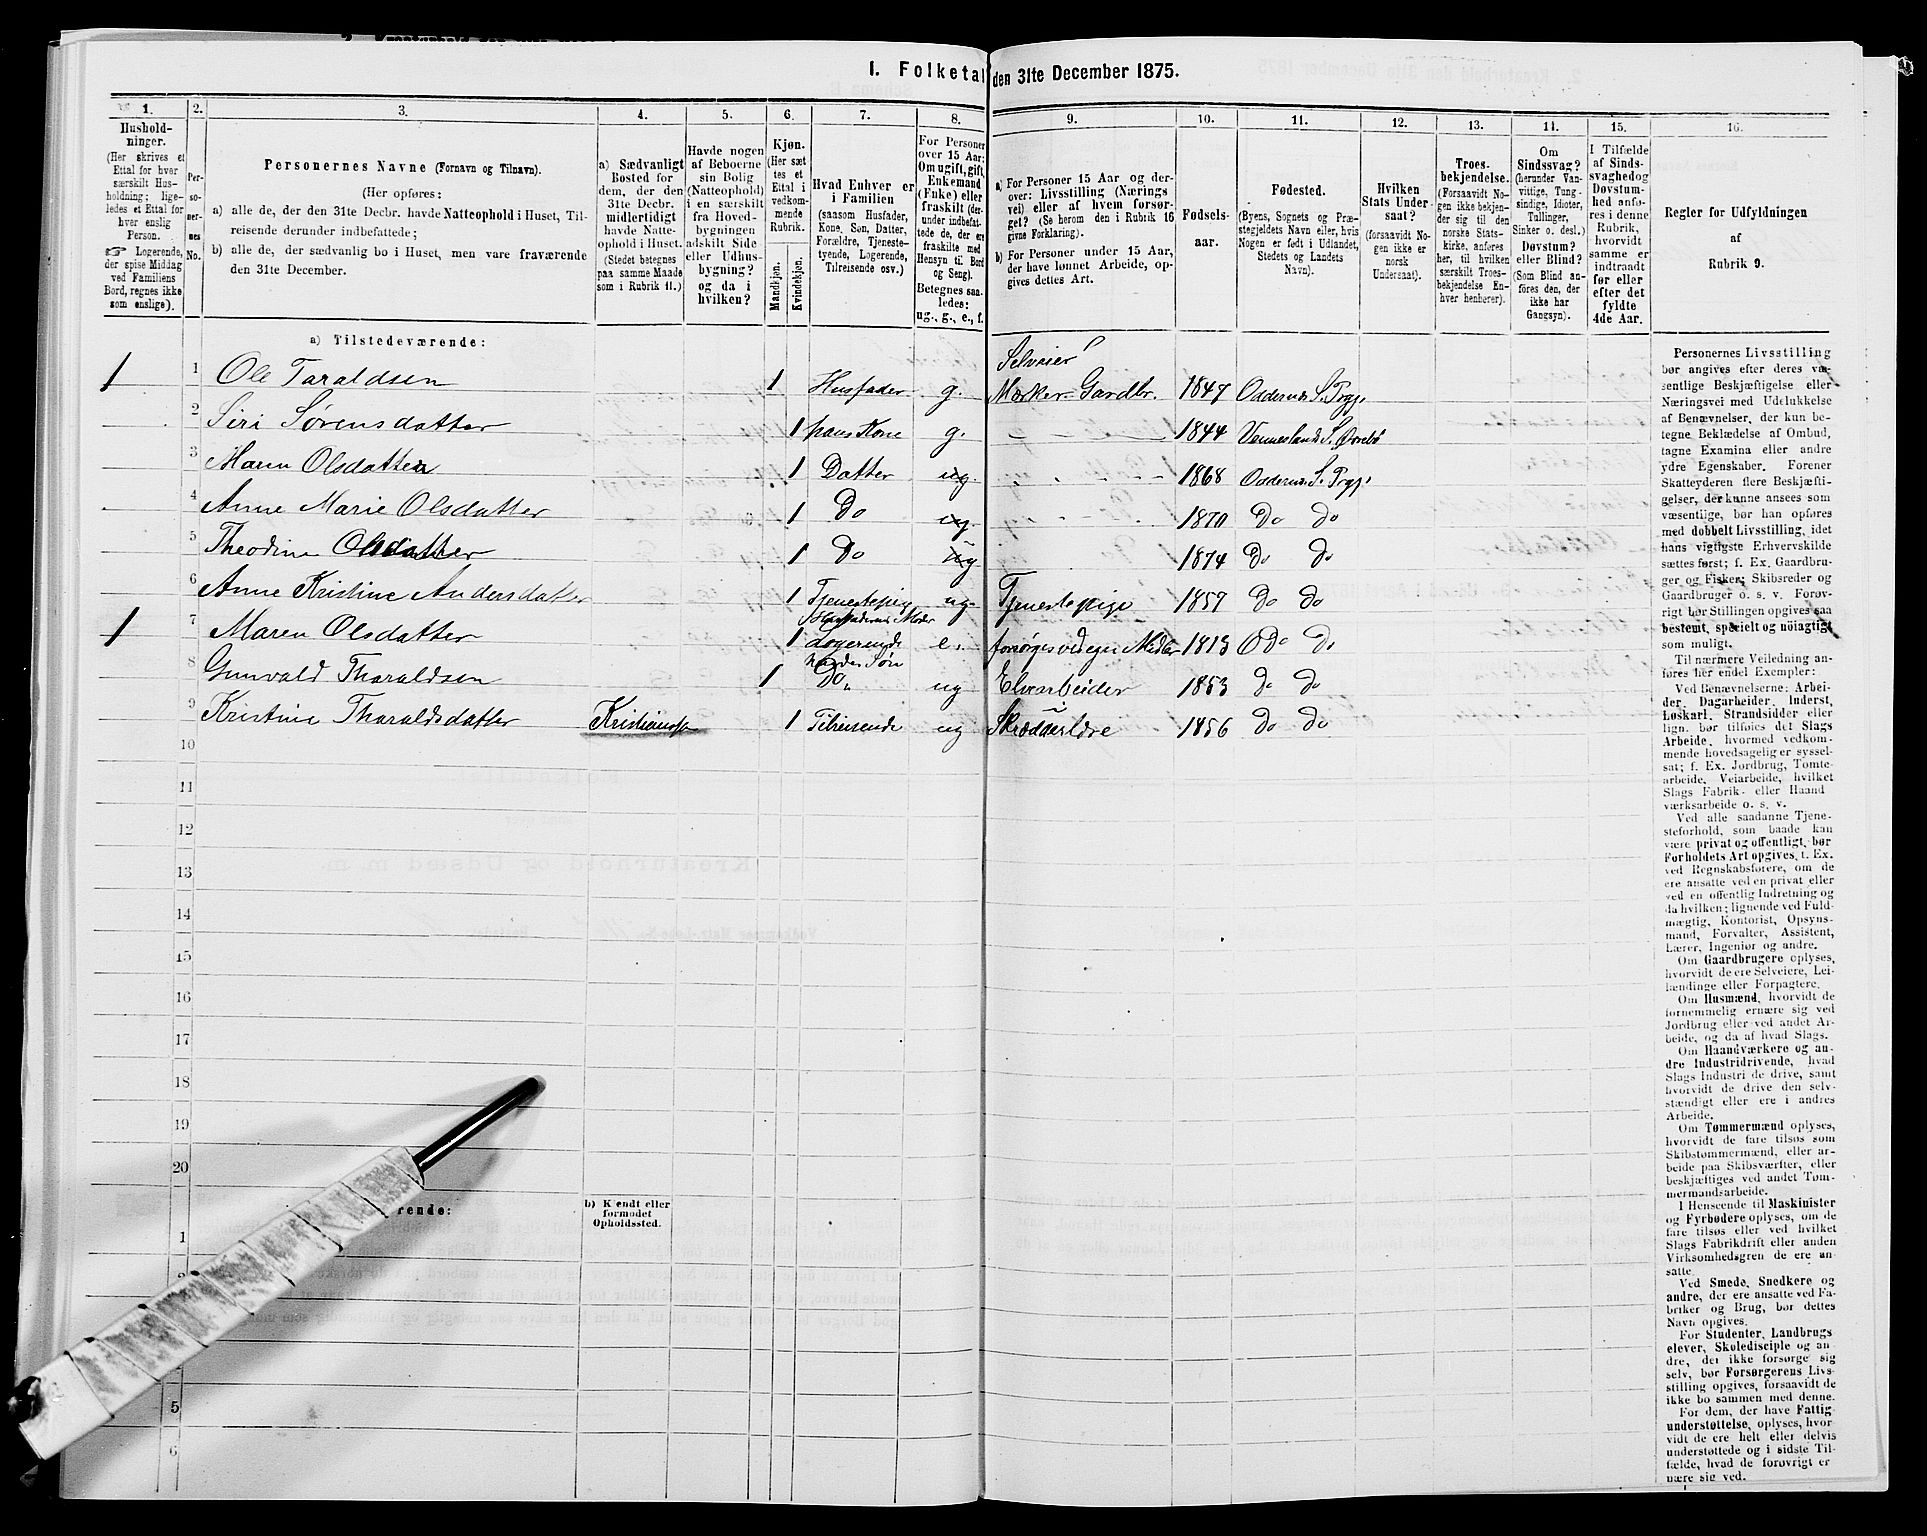 I. Folketal den 31te December 1875.
1. 2. 3. 4. 5. 6. 7. 8. 9. 10. 11. 12. 13. 14. 15. 16.
Hushold-
ninger.
(Her skrives et
Ettal for hver
særskilt Hus-
holdning; lige-
ledes et Ettal for
hver enslig
Person.
☞ Logerende,
der spise Middag
ved Familiens
Bord, regnes ikke
som enslige).
Per-
so-
ner-
nes
No.
Personernes Navne (Fornavn og Tilnavn).
(Her opføres:
a) alle de, der den 31te Decbr. havde Natteophold i Huset, Til-
reisende derunder indbefattede;
b) alle de, der sædvanlig bo i Huset, men vare fraværende
den 31te December.
a) Sædvanligt
Bosted for
dem, der den
31te Decbr.
midlertidigt
havde Natte-
ophold i Huset.
(Stedet betegnes
paa samme Maade
som i Rubrik 11.)
Havde nogen
af Beboerne
sin Bolig
(Natteophold)
i en særskilt
fra Hoved-
bygningen
adskilt Side
eller Udhus-
bygning?
og da i
hvilken?
Kjøn.
(Her sæt
tes et
Ettal i
vedkom-
mende
Rubrik.
Mandkjøn.
Kvindekjøn.
Hvad Enhver er
i Familien
(saasom Husfader,
Kone, Søn, Datter,
Forældre, Tjeneste-
tyende, Logerende,
Tilreisende osv.)
For Personer
over 15 Aar:
Om ugift, gift,
Enkemand
(Enke) eller
fraskilt (der-
under indbefat-
tede de, der ere
fraskilte med
Hensyn til Bord
og Seng).
Betegnes saa-
ledes:
ug., g., e., f.
a) For Personer 15 Aar og der-
over: Livsstilling (Nærings
vei) eller af hvem forsør-
get? (Se herom den i Rubrik 16
givne Forklaring).
b) For Personer under 15 Aar,
der have lønnet Arbeide, op-
gives dettes Art.
Fødsels-
aar.
Fødested.
(Byens, Sognets og Præ-
stegjeldets Navn eller, hvis
Nogen er født i Udlandet,
Stedets og Landets
Navn).
Hvilken
Stats Under-
saat?
(forsaavidt No-
gen ikke er
norsk
Undersaat).
Troes-
bekjendelse.
(Forsaavidt No-
gen ikke bekjen-
der sig til den
norske Stats-
kirke, anføres
her, til hvilken
særskilt Troes-
bekjendelse En-
hver henhører).
Om
Sindssvag?
(herunder Van-
vittige, Tung-
sindige, Idioter,
Tullinger,
Sinker o. desl.)
Døvstum?
eller Blind?
(Som Blind an-
føres den, der
ikke har
Gangsyn).
I Tilfælde
af Sinds-
svaghed og
Døvstum-
hed anfø-
res i denne
Rubrik,
hvorvidt
samme er
indtraadt
før eller
efter det
fyldte
4de Aar.
Regler for Udfyldningen
af
Rubrik 9.
a) Tilstedeværende:
Selveier
1 1 Ole Taraldsen 1 Husfader g. Mærker. Gardbr. 1847 Oddernes S. Prgj.
2 Siri Sørensdatter 1 hans Kone g. 1844 Venneslands S. Øvrebø
3 Maren Olsdatter 1 Datter ug. 1868 Oddernes S. Prgj.
4 Anne Marie Olsdatter 1 Do ug. 1870 Do Do
5 Theodine Olsdatter 1 Do ug 1874 Do Do
6 Anne Kristine Andersdatter 1 Tjenestepig ug. Tjenestepige 1857 Do Do
Husfaderens Moder
1 7 Maren Olsdatter 1 Logerende e. forsørges ved egne Midler 1813 Do Do
hendes Søn
8 Gunvald Tharaldsen 1 Do„ ug Elvearbeider 1853 Do Do
9 Kristine Tharaldsdatter Kristianssa 1 Tilreisende ug Skrædderldre 1856 Do Do
10
11
12
13
14
15
16
17
18
19
20
rende:
b) Kjendt eller
formodet
Opholdssted.
1
5
6
Personernes Livsstilling
bør angives efter deres væ-
sentlige Beskjæftigelse eller
Næringsvei med Udelukkelse
af Benævnelser, der kun be-
tegne Beklædelse af Ombud,
tagne Examina eller andre
ydre Egenskaber. Forener
Skatteyderen flere Beskjæfti-
gelser, der kunne ansees som
væsentlige, bør han opføres
med dobbelt Livsstilling, idet
hans vigtigste Erhvervskilde
sættes først; f. Ex. Gaardbru-
ger og Fisker; Skibsreder og
Gaardbruger o. s. v. Forøv-
rigt bør Stillingen opgives saa
bestemt, specielt og nøiagtigt
som muligt.
Til nærmere Veiledning an-
føres her endel Exempler:
Ved Benævnelserne: Arbei-
der, Dagarbeider, Inderst,
Løskarl, Strandsidder eller
lign. bør tilføies det Slags
Arbeide, hvormed vedkom-
mende hovedsagelig er syssel-
sat; f. Ex. Jordbrug, Tomte-
arbeide, Veiarbeide, hvilket
Slags Fabrik- eller Haand
værksarbeide o. s. v.
Ved alle saadanne Tjene-
steforhold, som baade kan
være privat og offentligt, bør
Forholdets Art opgives, t. Ex.
ved Regnskabsførere, om de
ere ansatte ved en privat eller
ved en offentlig Indretning og
da hvilken; lignende ved Fuld-
mægtig, Kontorist, Opsyns-
mand, Forvalter, Assistent,
Lærer, Ingeniør og andre.
Om Gaardbrugere oplyses,
hvorvidt de ere Selveiere, Lei-
lændinge eller Forpagtere.
Om Husmænd, hvorvidt de
fornemmelig ernære sig ved
Jordbrug eller ved andet Ar-
beide, og da af hvad Slags.
Om Haandværkere og an-
dre Industridrivende, hvad
Slags Industri de drive, samt
hvorvidt de drive den selv-
stændigt eller ere i andres
Arbeide.
Om Tømmermænd oplyses,
hvorvidt de fare tilsøs som
Skibstømmermænd, eller ar-
beide paa Skibsværfter, eller
beskjæftiges ved andet Tøm-
mermandsarbeide.
I Henseende til Maskinister
og Fyrbødere oplyses, om de
fare tilsøs eller ved hvilket
Slags Fabrikdrift eller anden
Virksomhedsgren de ere an-
satte.
Ved Smede, Snedkere og
andre, der ere ansatte ved Fa-
briker og Brug, bør dettes
Navn opgives.
For Studenter, Landbrugs
elever, Skoledisciple og an-
dre, der ikke forsørge sig
selv, bør Forsørgerens Livs-
stilling opgives, forsaavidt de
ikke bo sammen med denne.
For dem, der have Fattig
understøttelse, oplyses, hvor-
vidt de ere helt eller delvis
understøttede og i sidste Til-
fælde, hvad de forøvrigt er
nære sig ved.